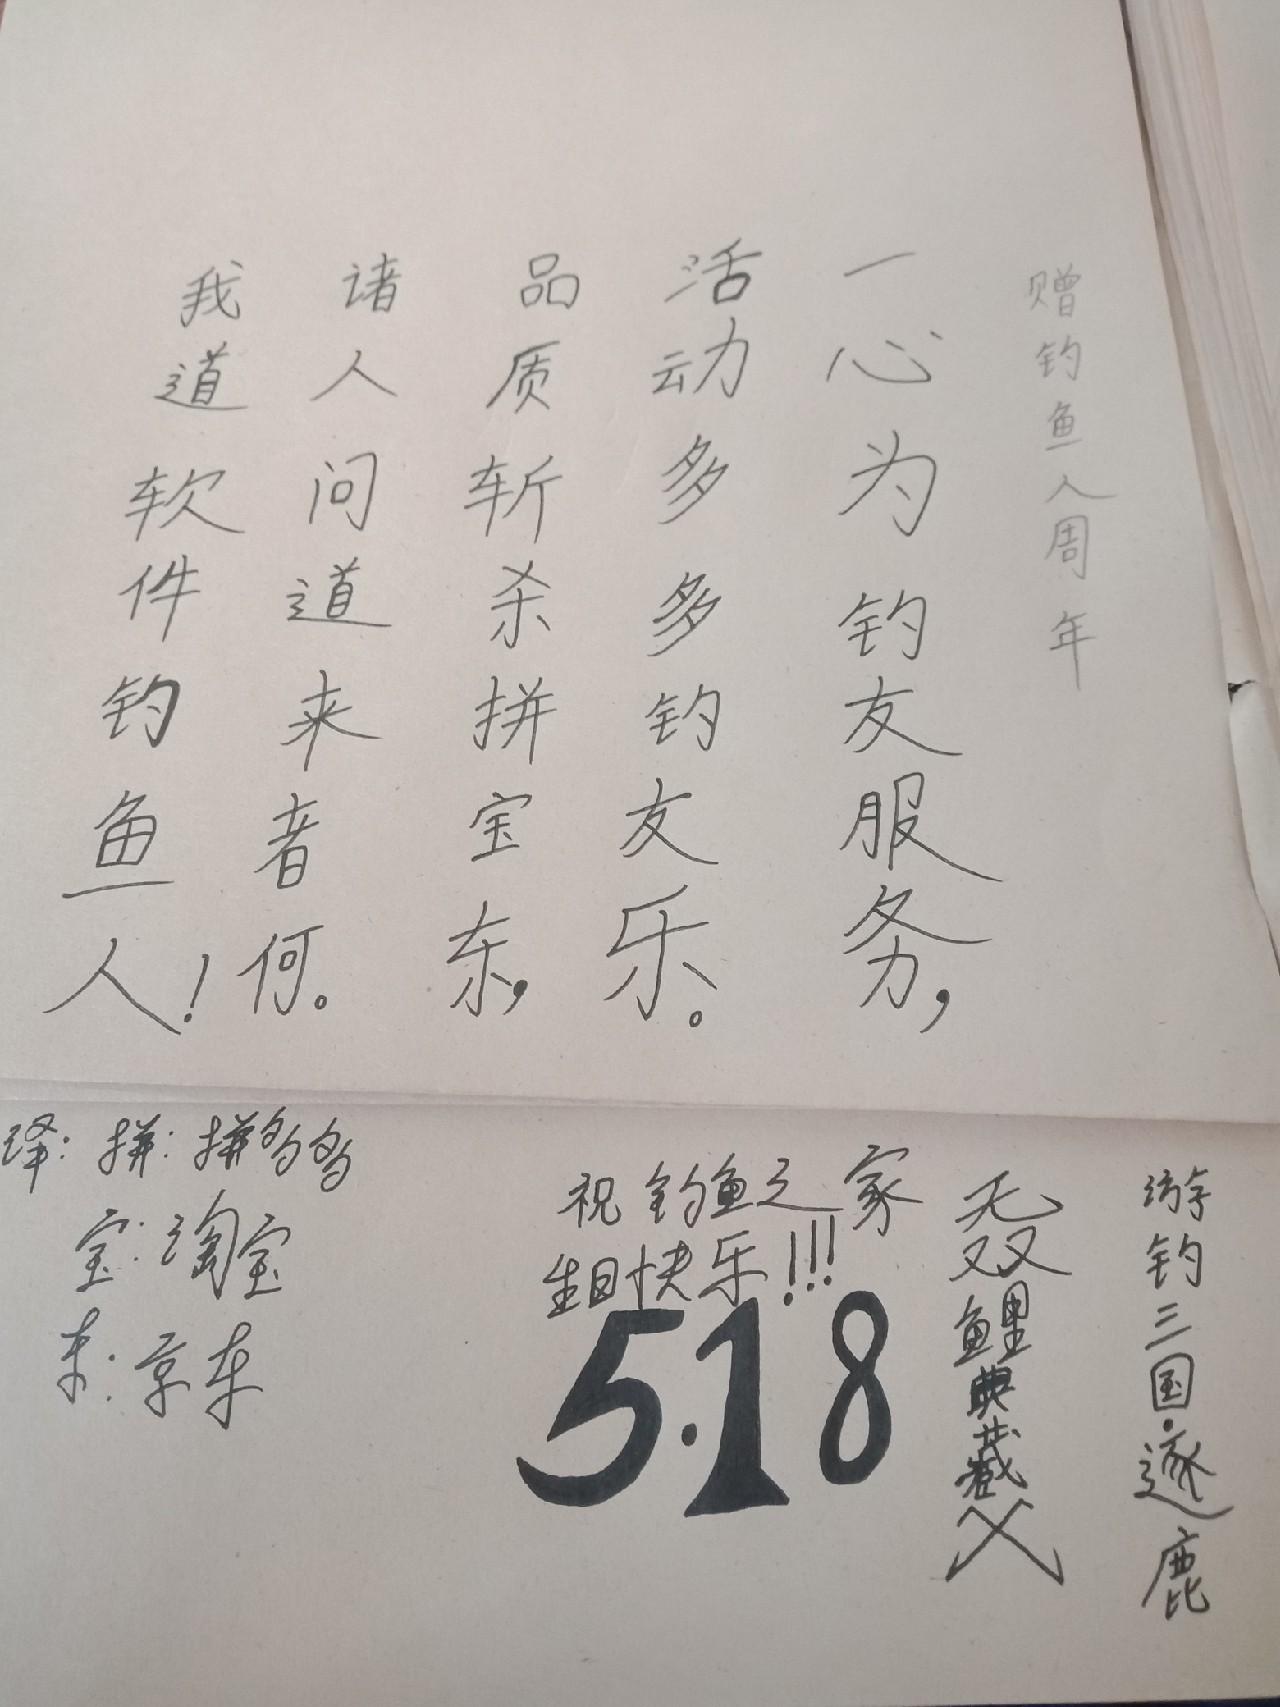 赠钓鱼人周年
一心为钓友服务，
活动多多钓友乐。
品质斩杀拼宝东，
诸人问道来者何。
我道软件钓鱼人！
译：拼：拼多多
宝：淘宝
东：京东
祝钓鱼之家
生日快乐！！！
5.18
游钓三国·逐鹿
无双鲤典藏